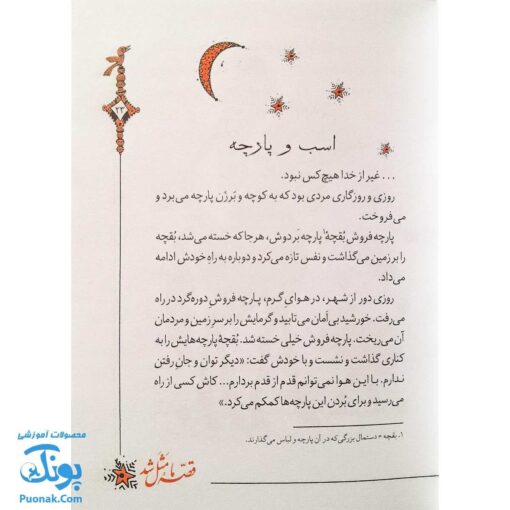 ۲۳
اسب و پارچه
... غیر از خدا هیچ‌کس نبود.
روزی و روزگاری مردی بود که به کوچه و بَرزَن پارچه می‌برد و
می‌فروخت.
پارچه فروش بُقچهٔ۱ پارچه بَر دوش، هرجا که خسته می‌شد، بُقچه
را بر زمین می‌گذاشت و نفس تازه می‌کرد و دوباره به راهِ خودش ادامه
می‌داد.
روزی دور از شهر، در هوایِ گرم، پارچه فروشِ دوره‌گرد در راه
می‌رفت. خورشید بی‌اَمان می‌تابید و گرمایش را بر سرِ زمین و مردمان
آن می‌ریخت. پارچه فروش خیلی خسته شد. بُقچهٔ پارچه‌هایش را به
کناری گذاشت و نشست و با خودش گفت: «دیگر توان و جانِ رفتن
ندارم. با این هوا نمی‌توانم قدم از قدم بردارم... کاش کسی از راه
می‌رسید و برای بُردن این پارچه‌ها کمکم می‌کرد.»
۱. بقچه = دستمال بزرگی که در آن پارچه و لباس می‌گذارند.
قصه ما مَثَل شد
محصولات آموزشی
پونک
Puonak.Com